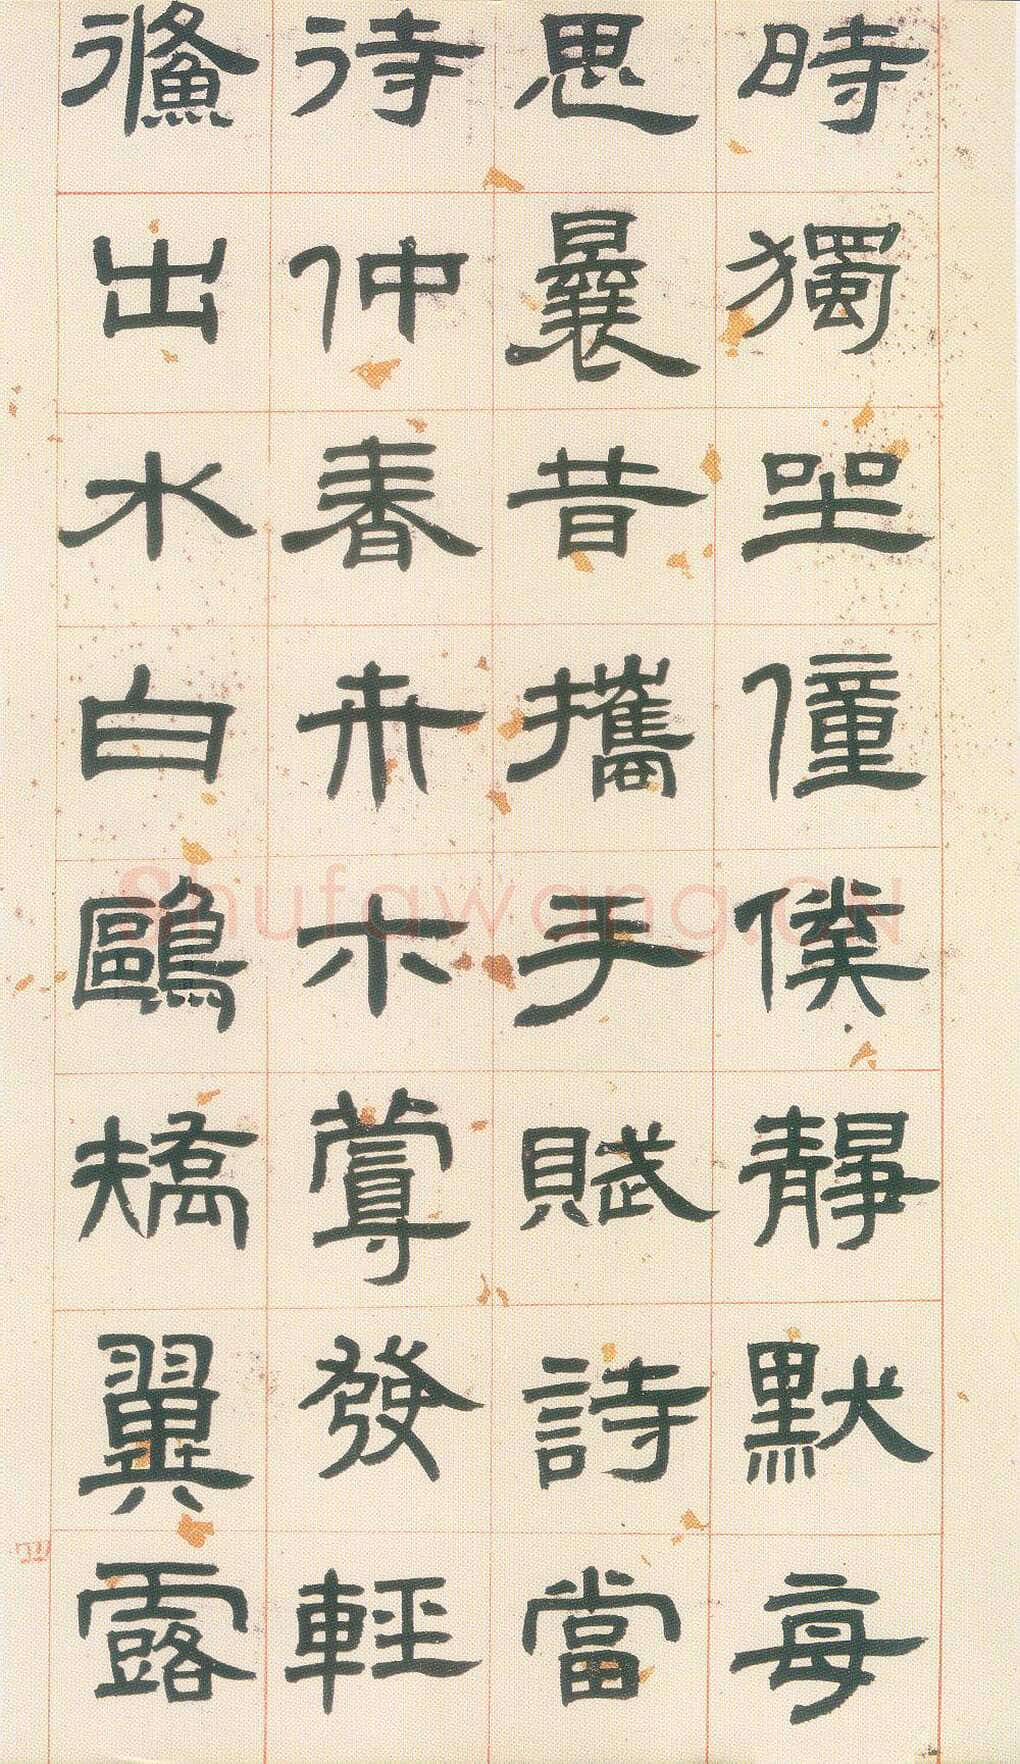 時獨坐僮僕靜默每
思曩昔攜手賦詩當
待仲春卉木蕚發輕
鯈出水白鷗矯翼露
Shufawang.CN